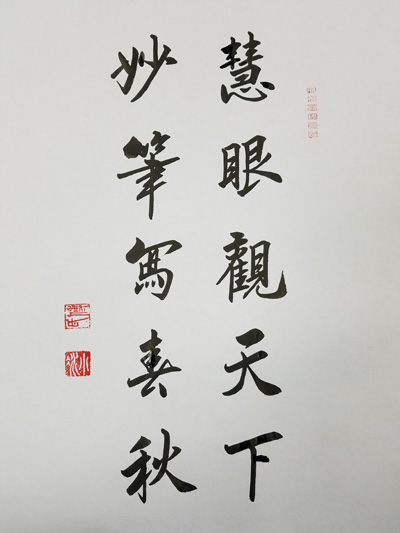 慧眼觀天下
妙筆寫春秋